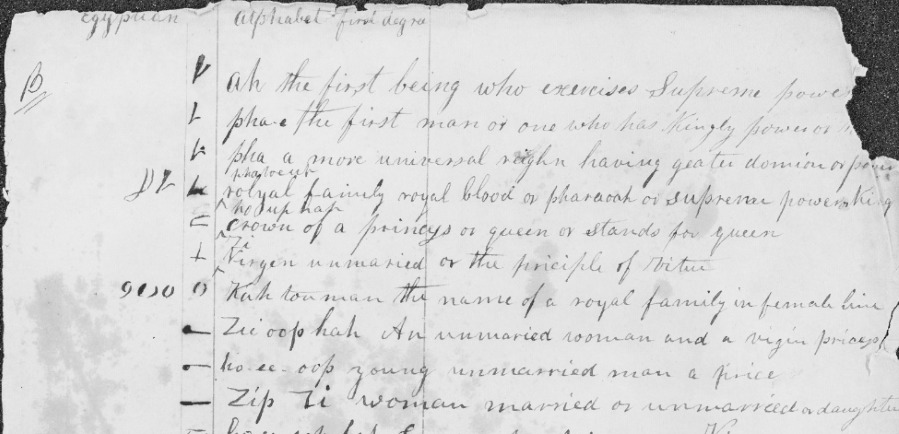 egyptian alphabet first degree
B
ah the first being who exercises Supreme power
pha-e the first man or one who has Kingly power or
pha a more universal reighn having geater domion or power
phatoeup
royal family royal blood or pharaoah or supreme power King
ho up hah
crown of a princes or queen or stands for queen
Zi
Virgen unmaried or the priciple of virtue
Kah tou man the name of a royal family in female line
Zi oop hah An unmaried woman and a vigin princess
ho-ee-oop young unmarried man a price
Zip Zi woman married or unmarried or daughter